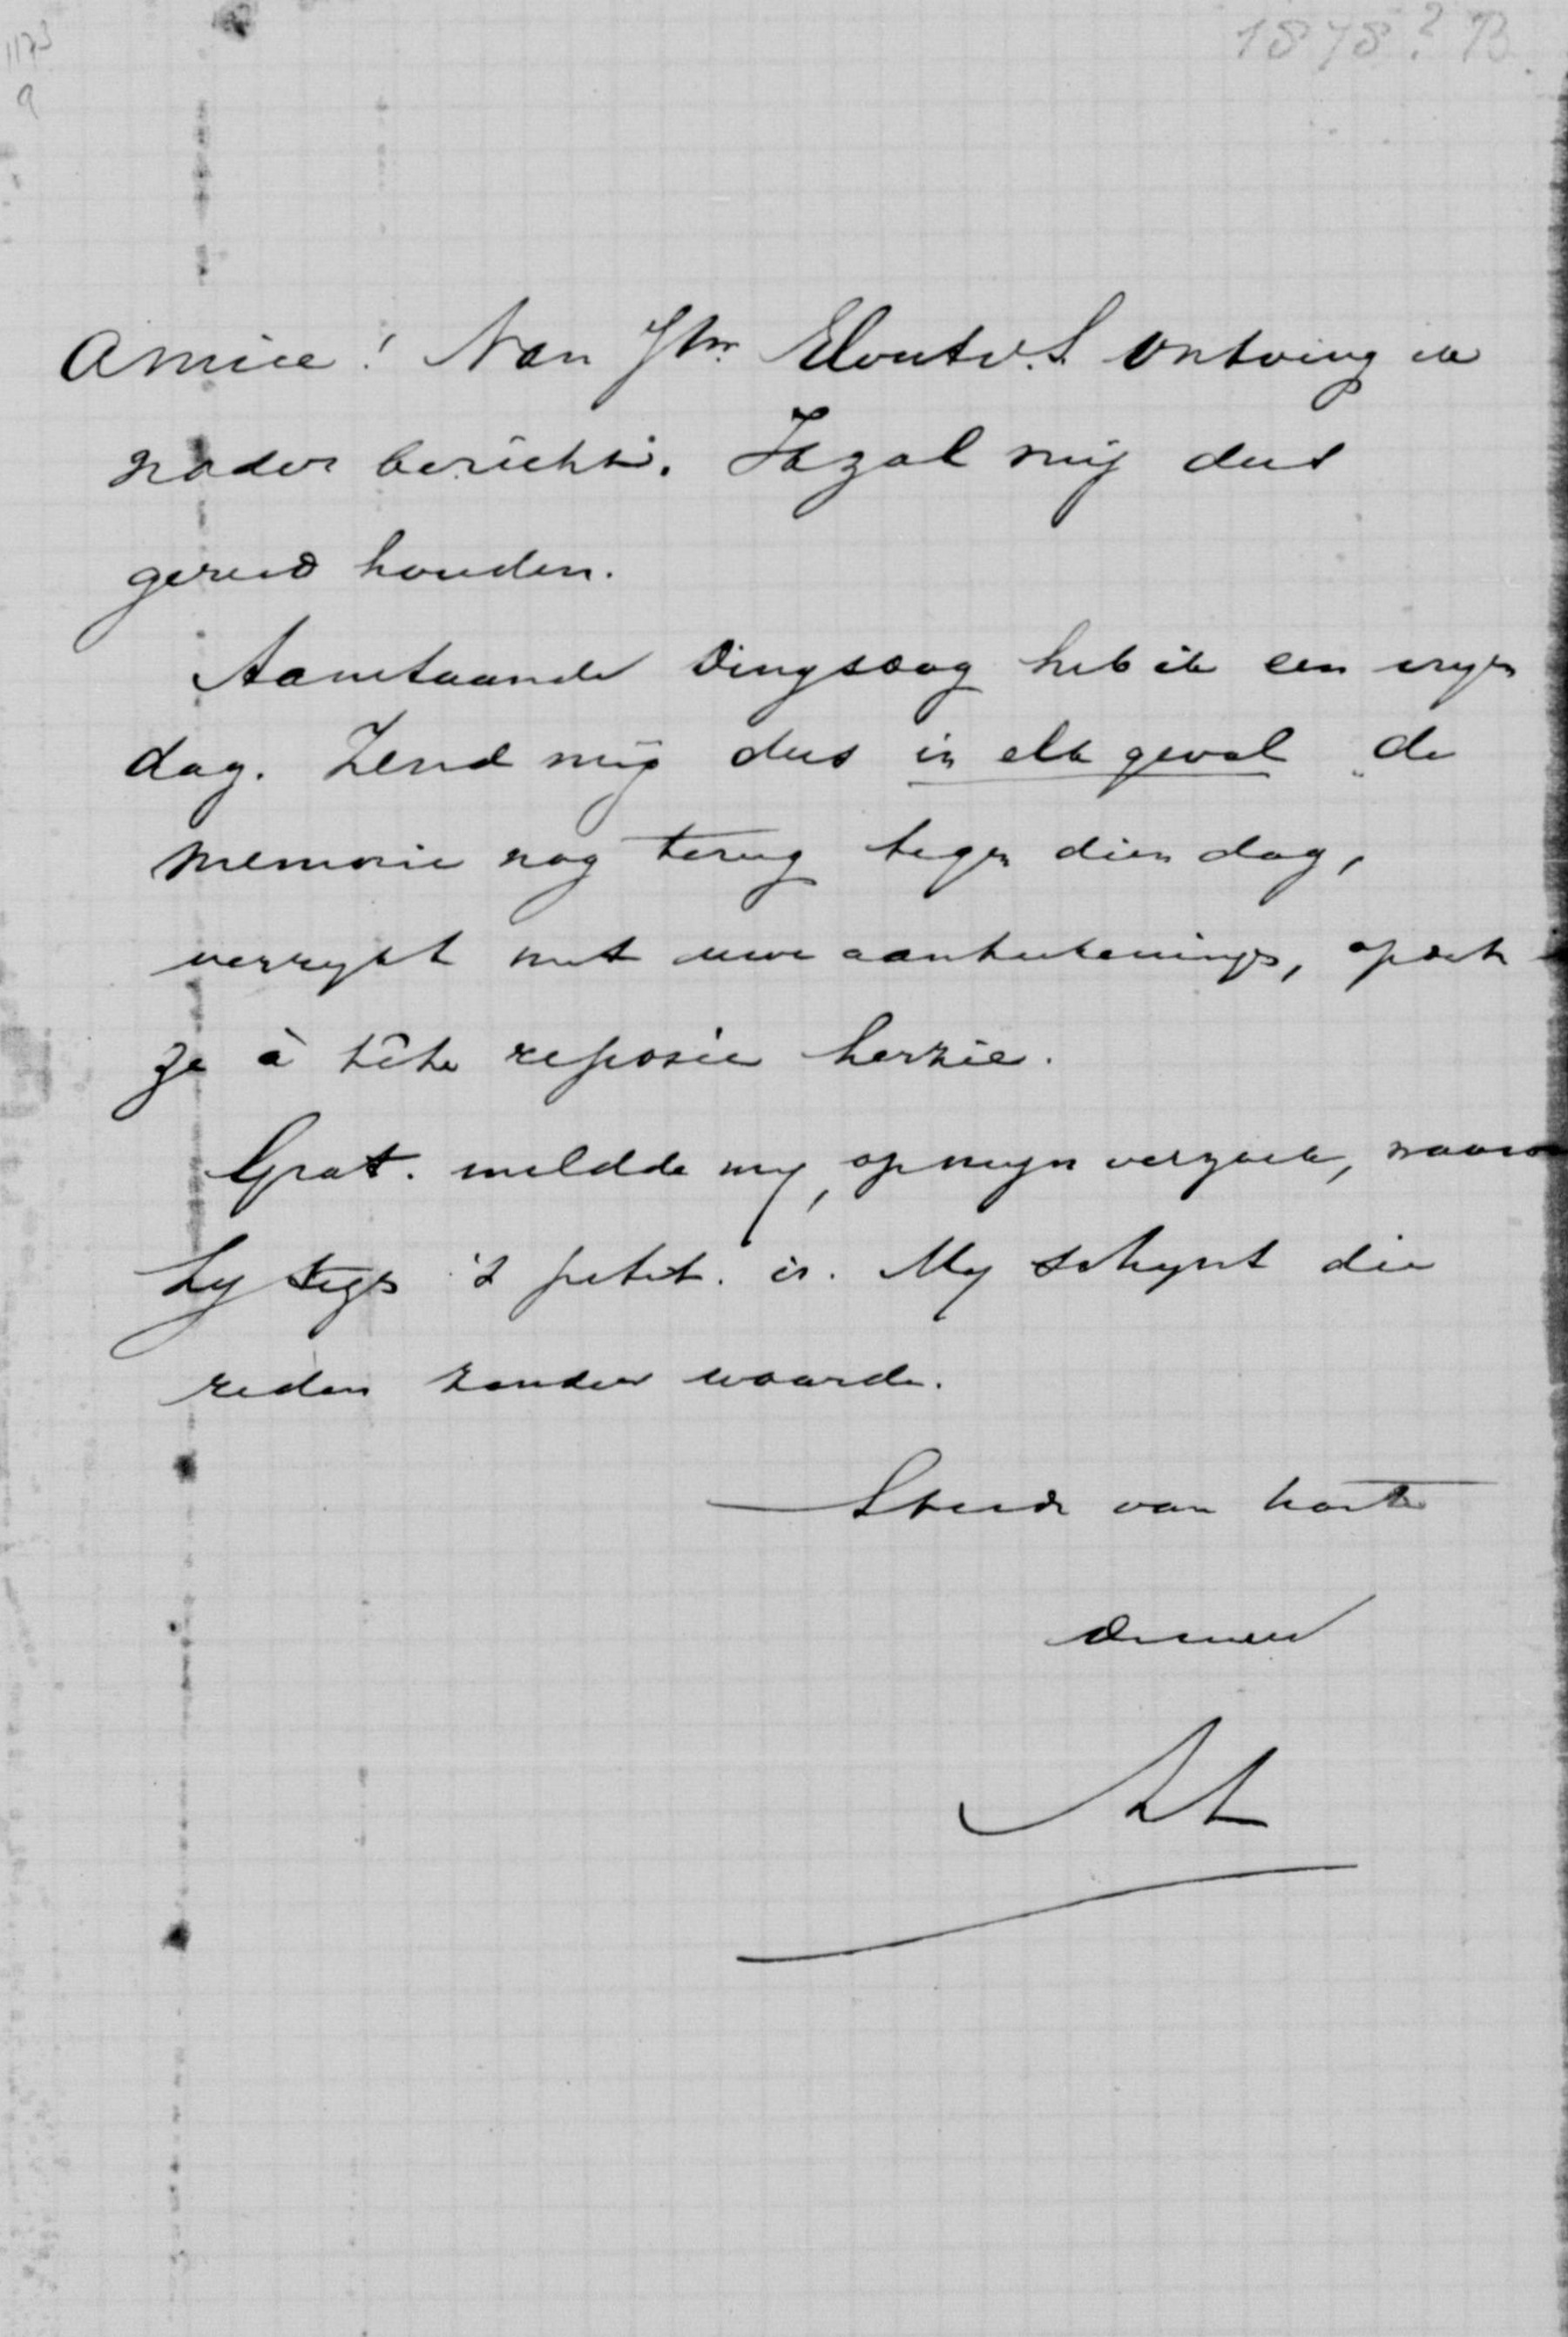 1173
a
1878? B.
Amice! Van Jhr Elout v. S. ontving ik
nader bericht. Ik zal mij dus
gereed houden.
Aanstaande Dingsdag heb ik een vryen
dag. Zend mij dus in elk geval de
memorie nog terug tegen dien dag,
verrykt met uwe aanteekeningen, opdat ik
ze à tête reposée herzie.
Grat. meldde my, op mijn verzoek, waarom
hy tegs 't petit. is. My schynt die
reden zonder waarde.
Steeds van harte